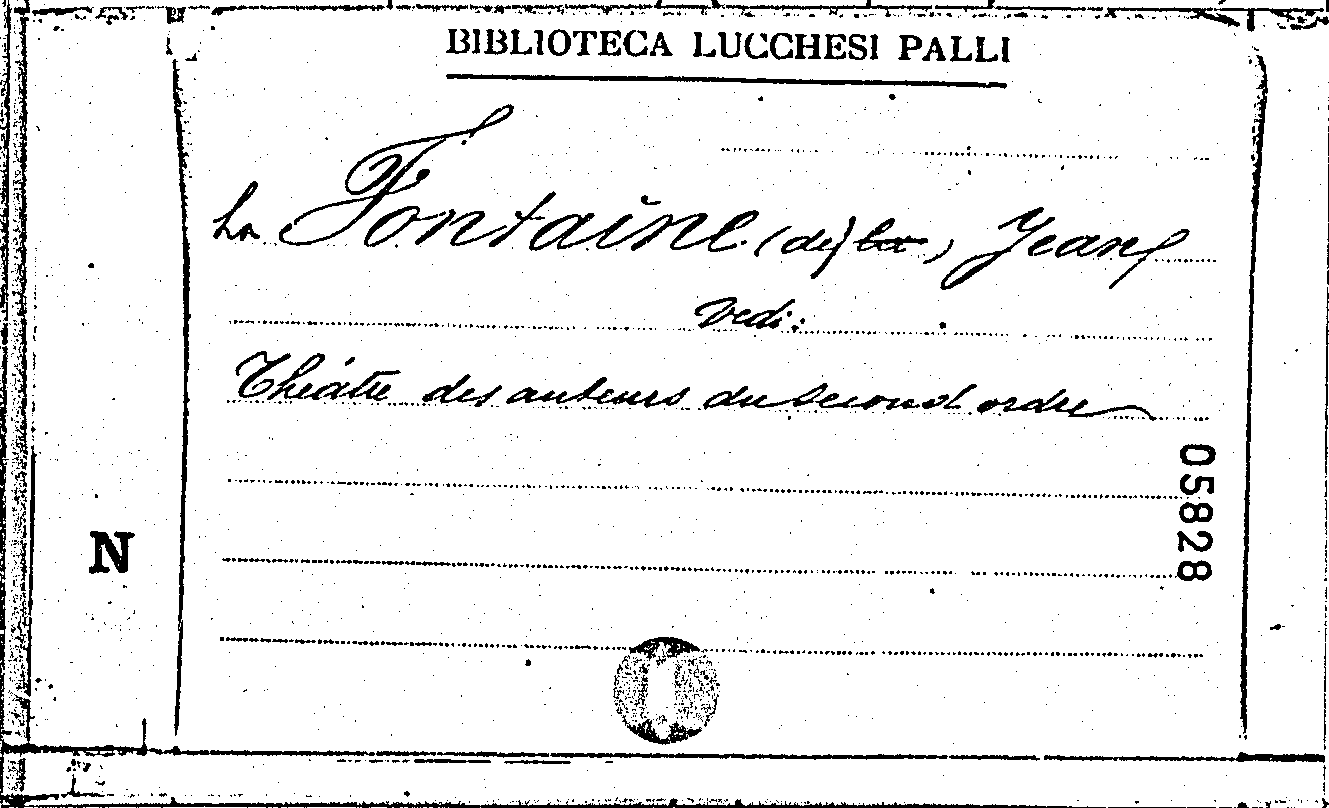 BIBLIOTECA LUCCHESI PALLI
La Fontaine (de) la, Jean
vedi:
Théâtre des auteurs du second ordre
05828
N